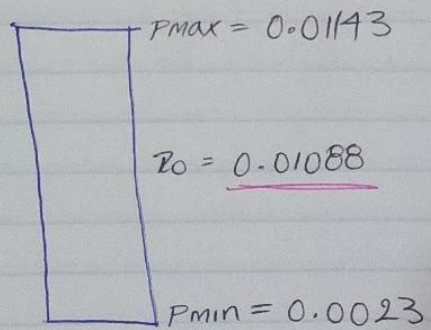 Pmax = 0.01143
Ro = 0.01088
Pmin = 0.0023